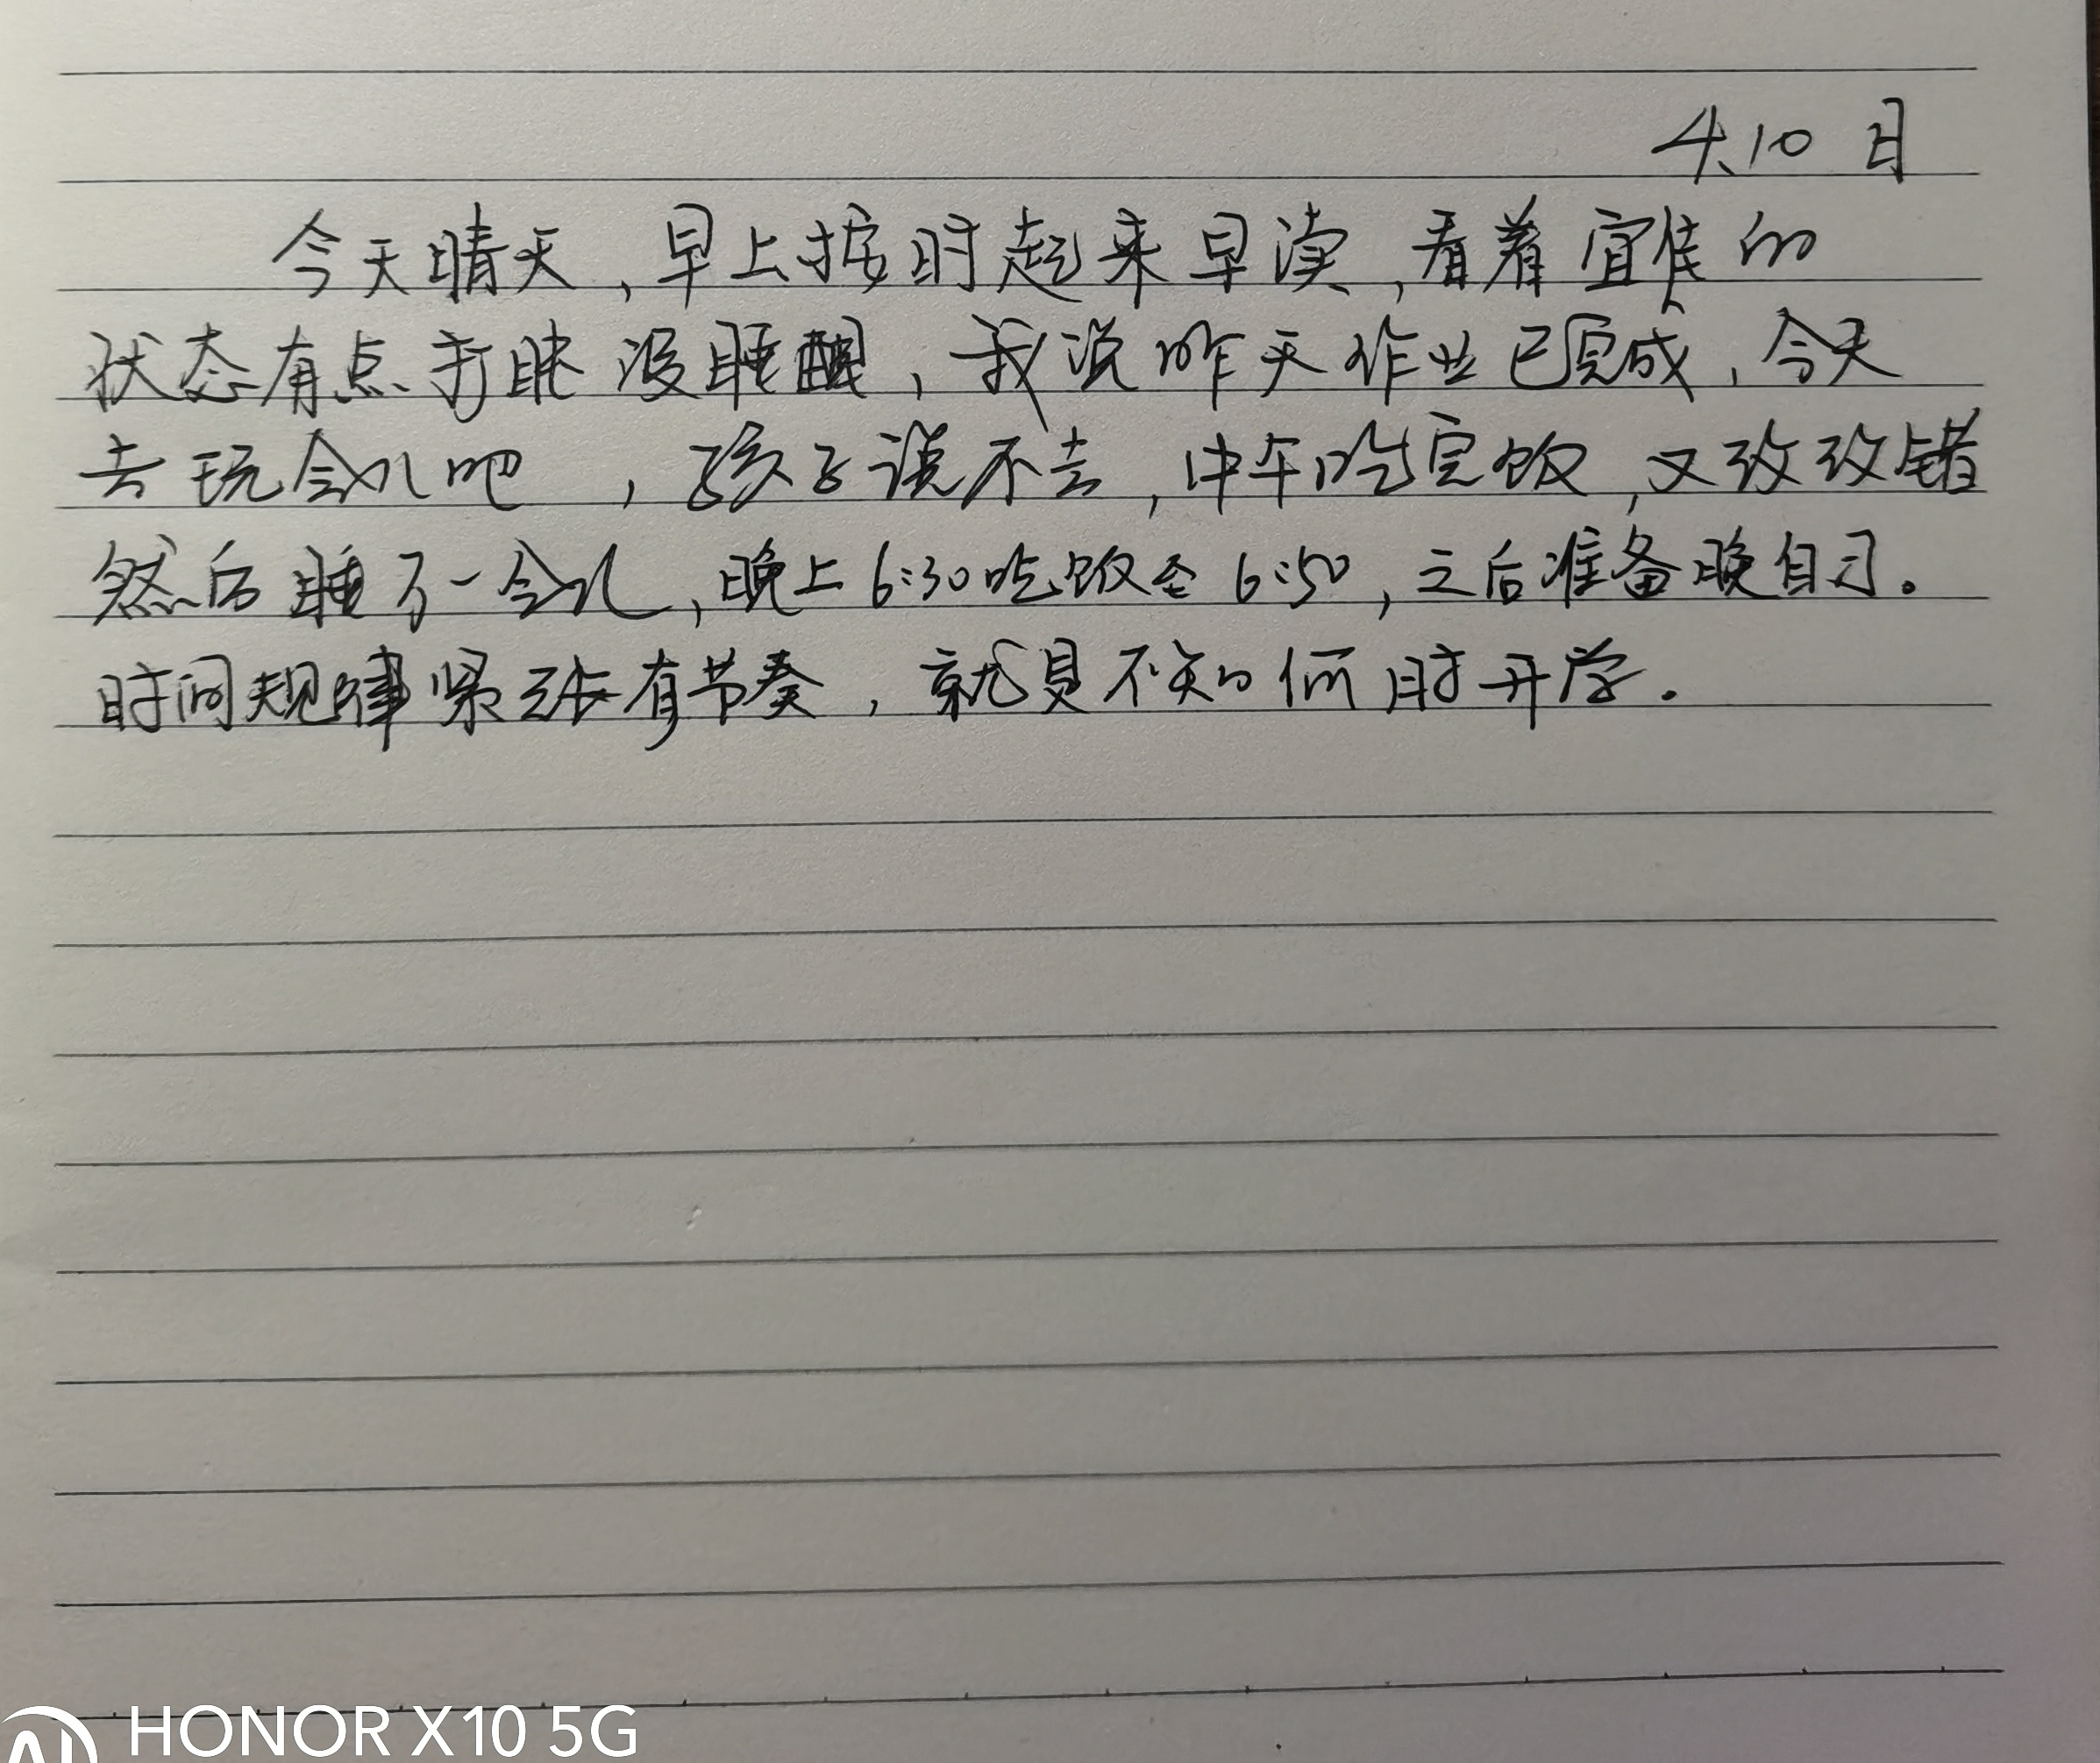 4.10 日
今天晴天,早上按时起来早读,看着宜佳的
状态有点打眯没睡醒,我说昨天作业已完成,今天
去玩会儿吧,孩子说不去,中午吃完饭,又改改错
然后睡了一会儿,晚上6:30吃饭至6:50,之后准备晚自习。
时间规律紧张有节奏,就是不知何时开学.
HONOR X10 5G